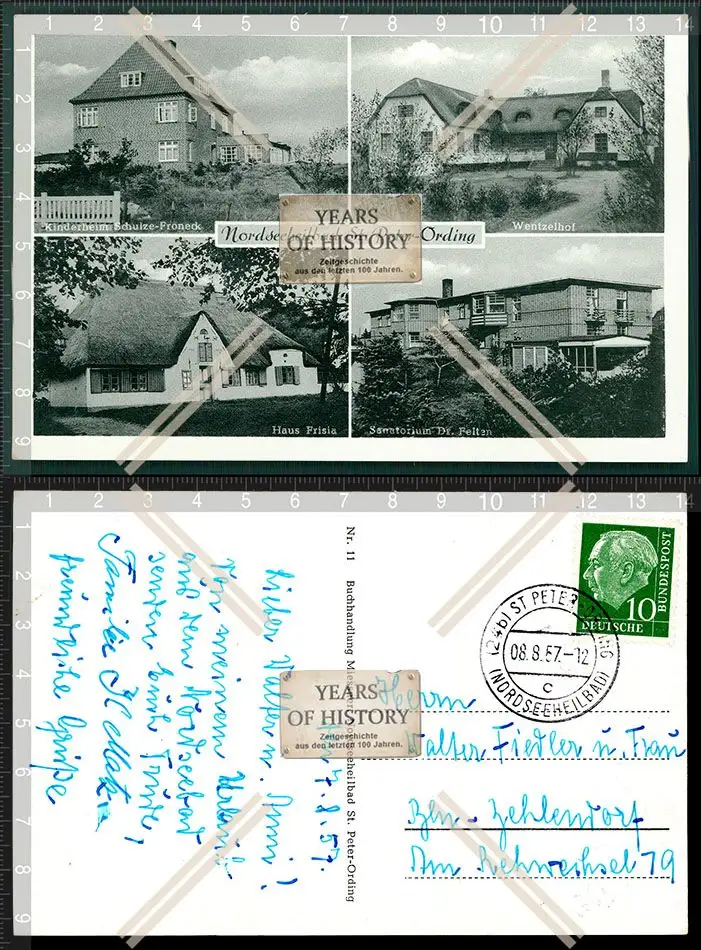 1 2 3 4 5 6 7 8 9 10 11 12 13 14
1
2
3
4
5
6
7
8
9
Kinderheim Schulze-Froneck
Wentzelhof
Nordseeheilbad St. Peter-Ording
YEARS
OF HISTORY
Zeitgeschichte
aus den letzten 100 Jahren.
Haus Frisia
Sanatorium Dr. Felten
1 2 3 4 5 6 7 8 9 10 11 12 13 14
1
2
3
4
5
6
7
8
9
7.8.57.
Lieber Walter u. Anni!
Von meinem Urlaub
aus dem Nordseebad
senden Euch
Familie
freundliche Grüße
Nr. 11 Buchhandlung Nordseeheilbad St. Peter-Ording
YEARS
OF HISTORY
Zeitgeschichte
aus den letzten 100 Jahren.
10
DEUTSCHE
BUNDESPOST
(24b) ST PETER-ORDING
08.8.57.-12
c
(NORDSEEHEILBAD)
Herrn
Walter Fiedler u. Frau
Bln-Zehlendorf
Am Rehwechsel 79